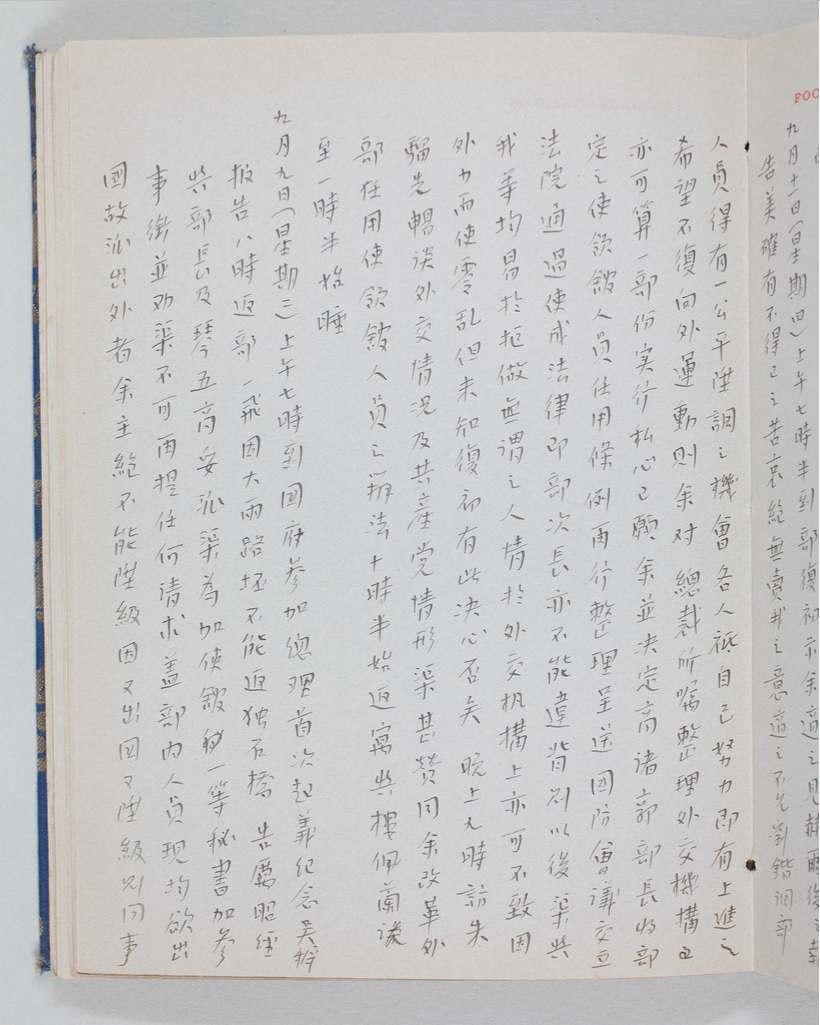 FOO
九月十一日(星期四)上午七時半到部復初示余適之見赫爾後之
告美確有不得已之苦衷絕無賣我之意適之不允
人員得有一公平陞調之機會各人祇自己努力即有上進之
希望不復向外運動則余对總裁所囑整理外交機構
亦可算一部份实行私心已願余並決定商諸部部長將部
定之使領館人員任用條例再行整理呈送国防會議交立
法院通過使成法律即部次長亦不能違背則以後渠與
我等均易於拒做無謂之人情於外交机構上亦可不致因
外力而使零乱但未知復初有此决心否矣 晚上九時訪朱
騮先暢谈外交情况及共產党情形渠甚赞同余改革外
部任用使領館人員之辦法十時半始返寓與樓佩蘭談
至一時半始睡
九月九日(星期二)上午七時到国府參加總理首次起義紀念吴稚
报告八時返部一飛因大雨路坯不能返独石橋 告厲昭經
與部長及琴五商妥派渠為加使館一等秘書加参
事銜並劝渠不可再提任何请求蓋部內人員现均欲出
國故派出外者余主絕不能陞級因又出国又陞級则同事